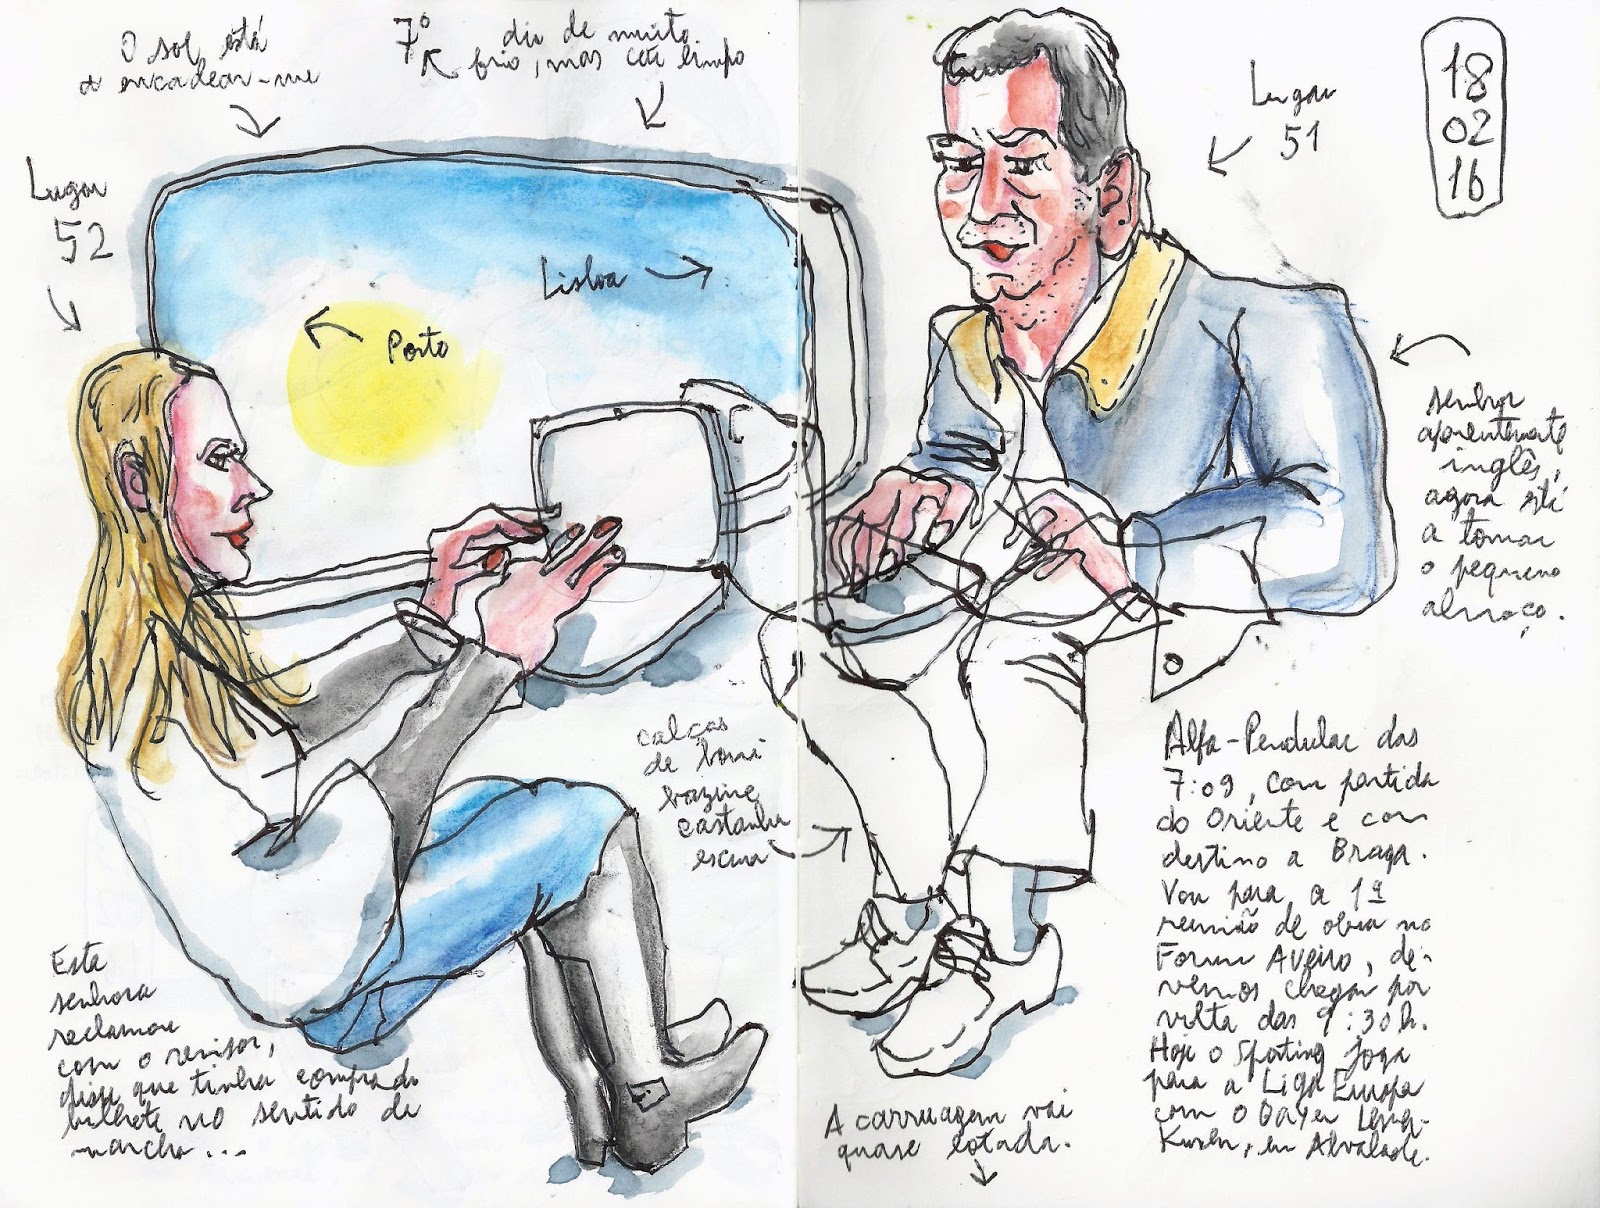 O sol está
a encadear-me
7º
dia de muito
frio, mas céu limpo
Lugar
52
Lisboa
Porto
Lugar
51
18
02
16
senhor
aparentemente
inglês,
agora está
a tomar
o pequeno
almoço.
calças
de bom
bazine
castanho
escuro
Esta
senhora
reclamou
com o revisor,
disse que tinha comprado
bilhete no sentido de
marcha...
A carruagem vai
quase lotada.
Alfa-Pendular das
7:09, com partida
do Oriente e com
destino a Braga.
Vou para a 1ª
reunião de obra no
Forum Aveiro, de-
vemos chegar por
volta das 9:30h.
Hoje o Sporting joga
para a Liga Europa
com o Bayer Lever-
kusen, em Alvalade.